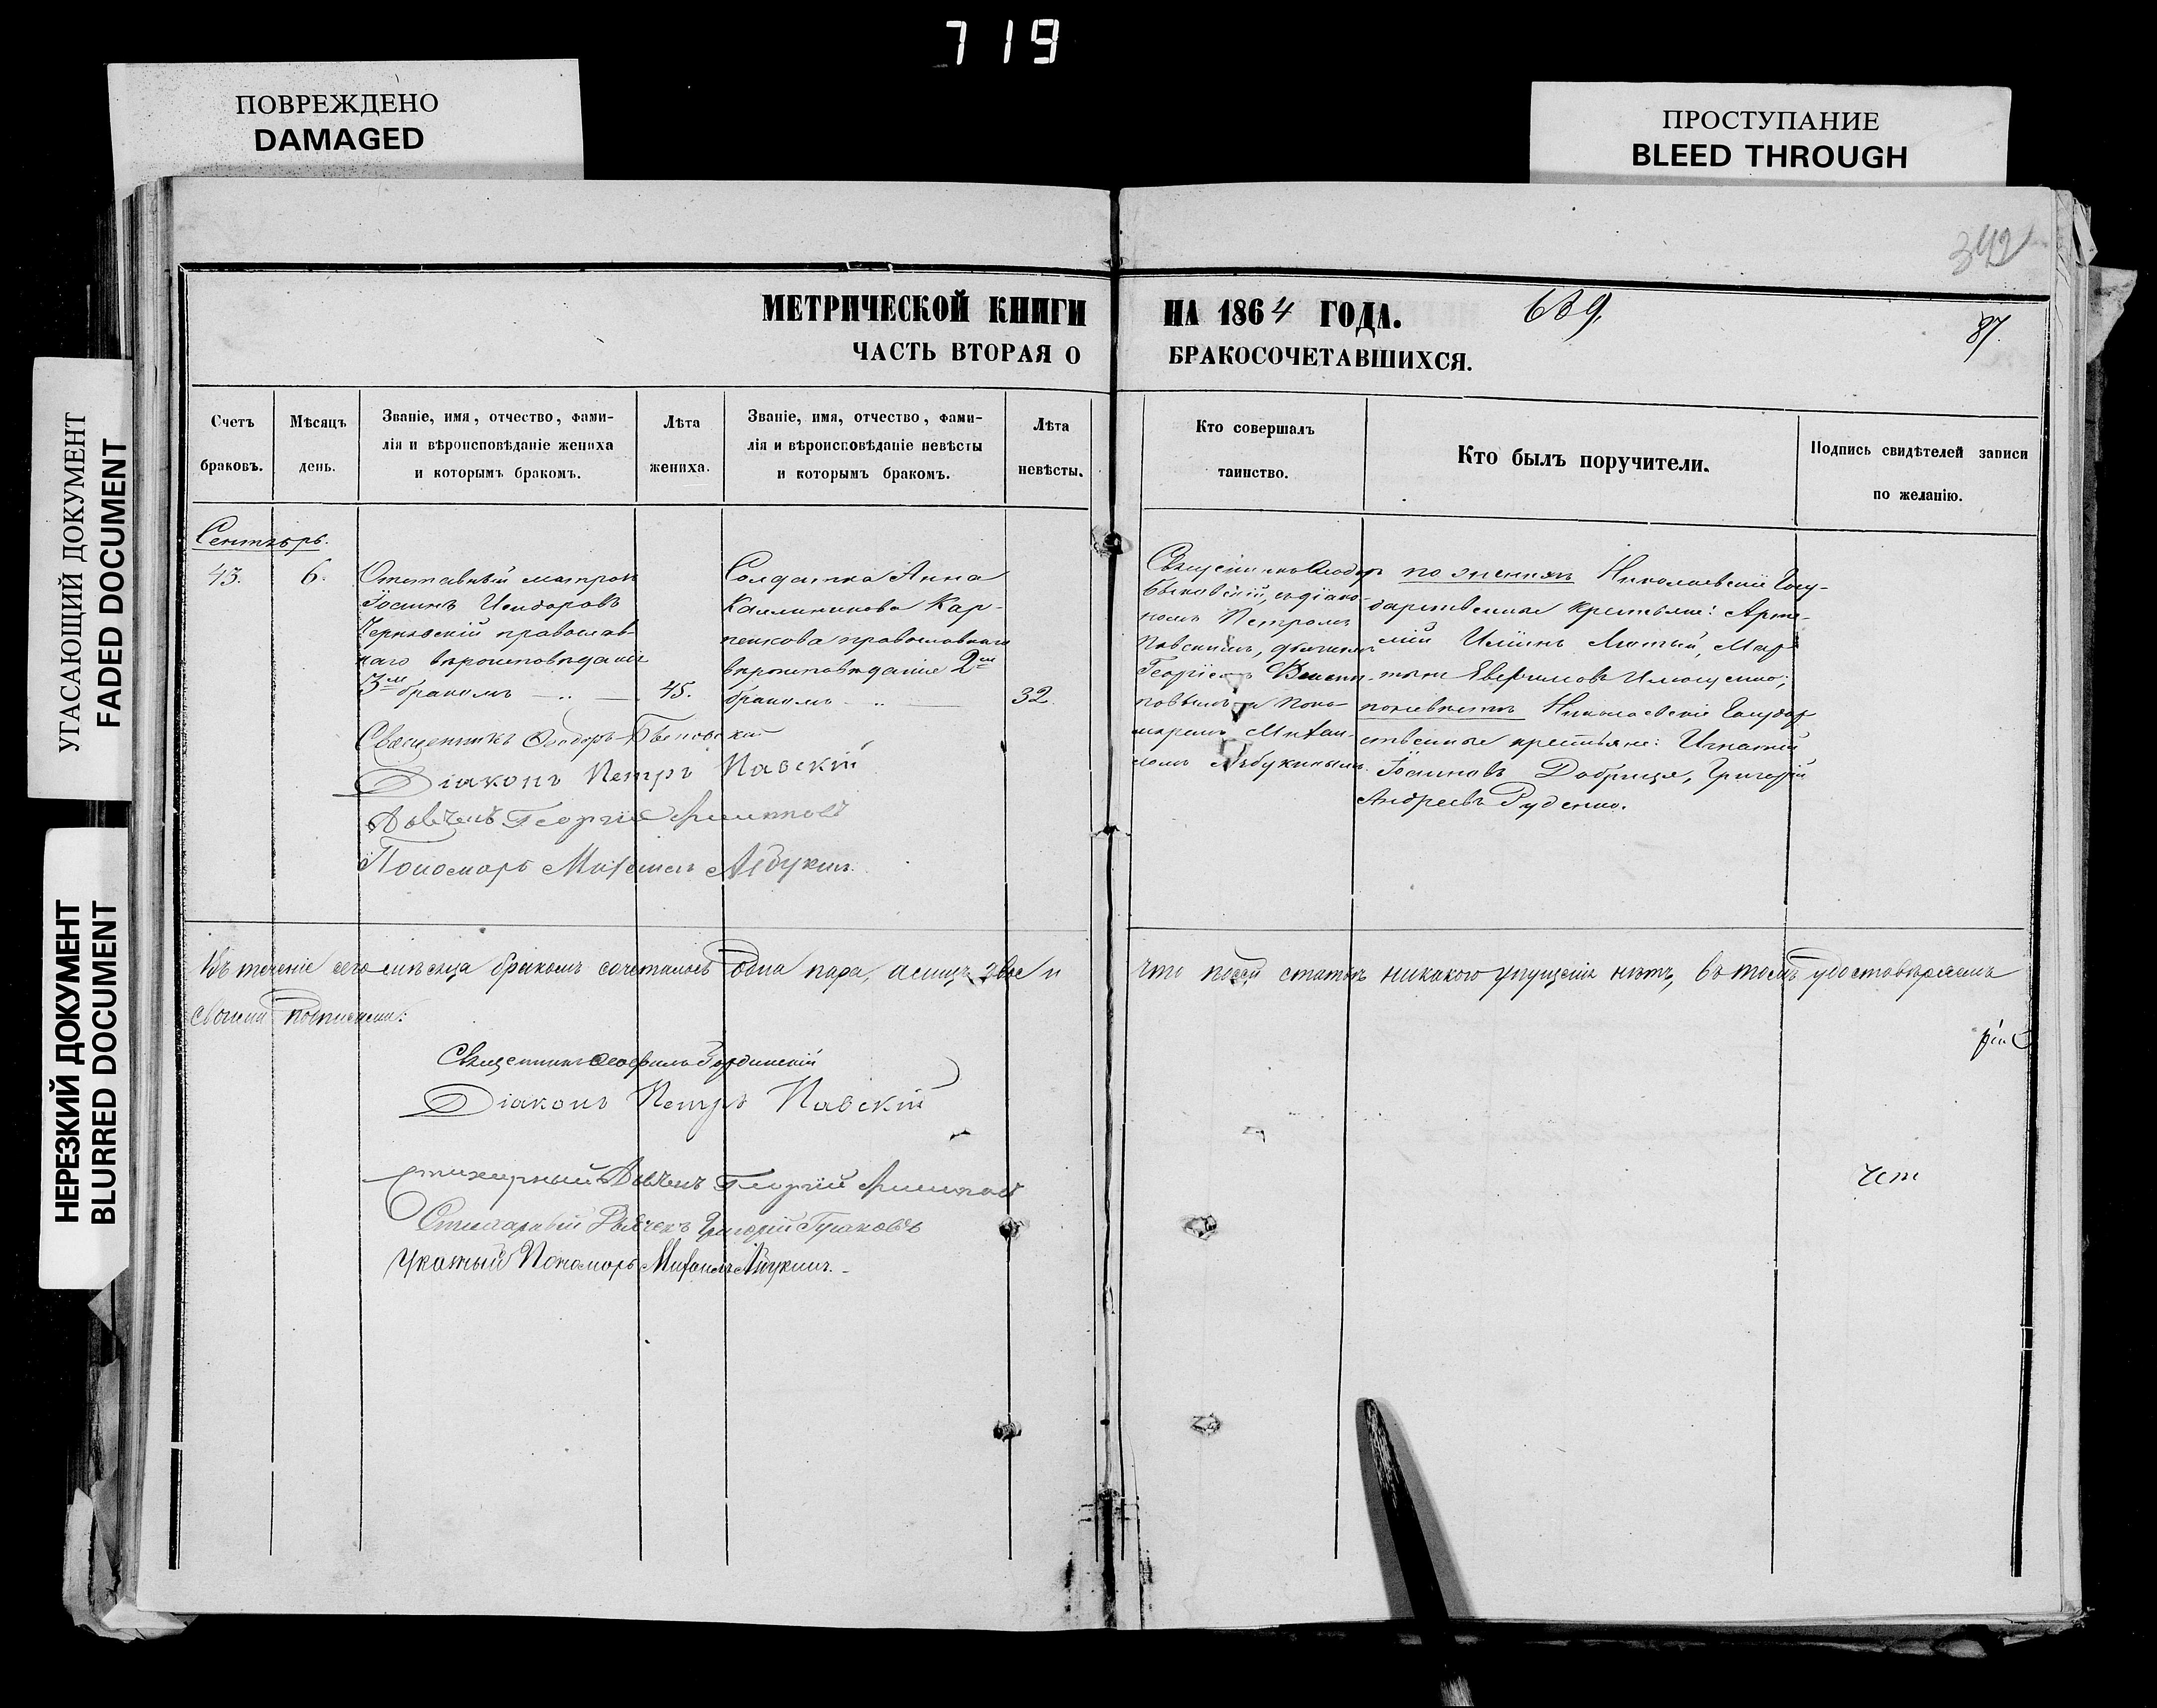 719
ПОВРЕЖДЕНО
DAMAGED
ПРОСТУПАНИЕ
BLEED THROUGH
УГАСАЮЩИЙ ДОКУМЕНТ
FADED DOCUMENT
НЕРЕЗКИЙ ДОКУМЕНТ
BLURRED DOCUMENT
342
МЕТРИЧЕСКОЙ КНИГИ НА 1864 ГОДА. 639.
87.
ЧАСТЬ ВТОРАЯ О БРАКОСОЧЕТАВШИХСЯ.
Счетъ браковъ.
Мѣсяцъ день.
Званіе, имя, отчество, фами-
лія и вѣроисповѣданіе жениха
и которымъ бракомъ.
Лѣта
жениха.
Званіе, имя, отчество, фами-
лія и вѣроисповѣданіе невѣсты
и которымъ бракомъ.
Лѣта
невѣсты.
Кто совершалъ
таинство.
Кто былъ поручители.
Подпись свидѣтелей записи
по желанію.
Сентябрь.
43.
6.
Отставный матросъ
Іоаннъ Исидоровъ
Черновскій православ-
наго вѣроисповѣданія
3м бракомъ
45.
Солдатка Анна
Каллиникова Кар-
пенкова православнаго
вѣроисповѣданія 2м
бракомъ
32.
Священникъ Ѳеодоръ
Быковскій, съ діако-
номъ Петромъ
Павскимъ, дьячкомъ
Георгіемъ
и Поно-
маремъ Михаи-
ломъ Азбукинымъ.
по женихѣ Николаевскіе Госу-
дарственные крестьяне: Арте-
мій Ильинъ Лютый, Мар-
тинъ Евфимовъ Илющенко;
по невѣстѣ Николаевскіе Государ-
ственные крестьяне: Игнатій
Іоанновъ Добрица, Григорій
Андреевъ Руденко.
Священникъ Ѳеодоръ Быковскій
Діаконъ Петръ Павскій
Дьячекъ Георгій
Пономарь Михаилъ Азбукинъ.
Въ теченіе сего мѣсяца бракомъ сочеталось одна пара, а лицъ двое и что по сей статьѣ никакого упущенія нѣтъ, въ томъ удостовѣряемъ
своими подписями:
Священникъ Ѳеофилъ
Діаконъ Петръ Павскій
Стихарный Дьячекъ Георгій
Стихарный Дьячекъ Григорій
Указный Пономарь Михаилъ Азбукинъ.